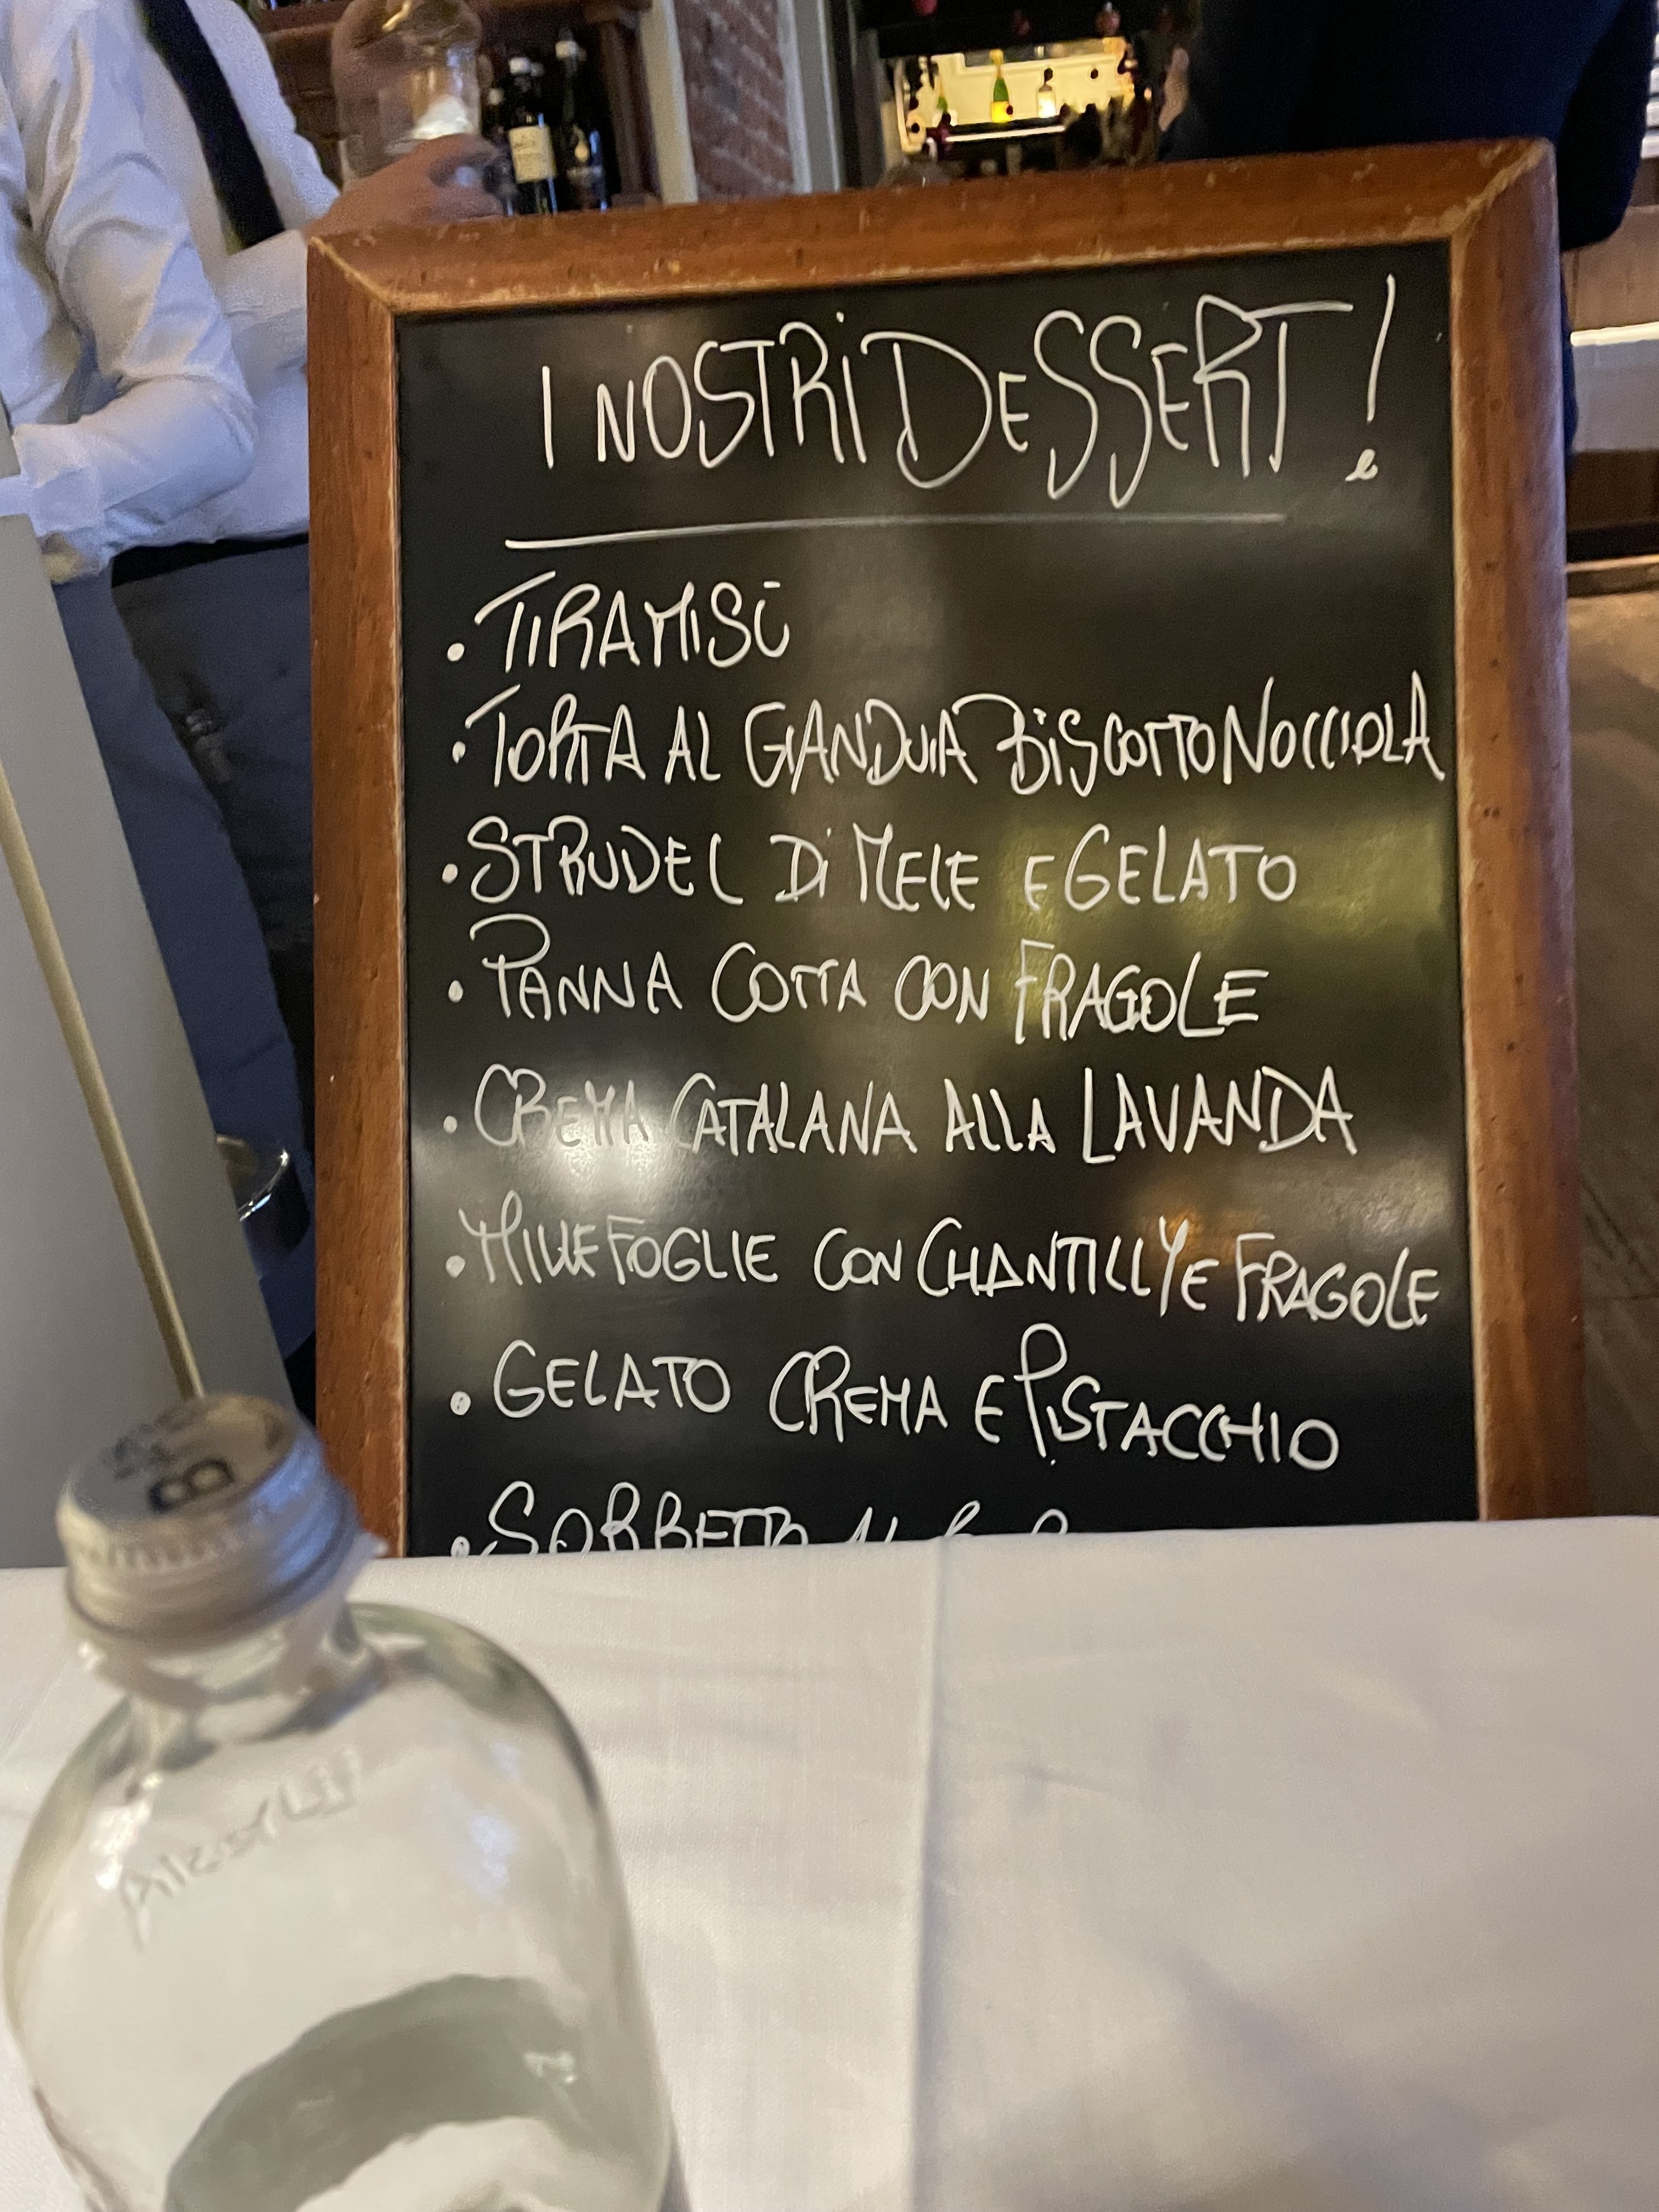 I NOSTRI DESSERT!
• TIRAMISÙ
• TORTA AL GIANDUIA BISCOTTO NOCCIOLA
• STRUDEL DI MELE E GELATO
• PANNA COTTA CON FRAGOLE
• CREMA CATALANA ALLA LAVANDA
• MILLEFOGLIE CON CHANTILLY E FRAGOLE
• GELATO CREMA E PISTACCHIO
• SORBETTO AL